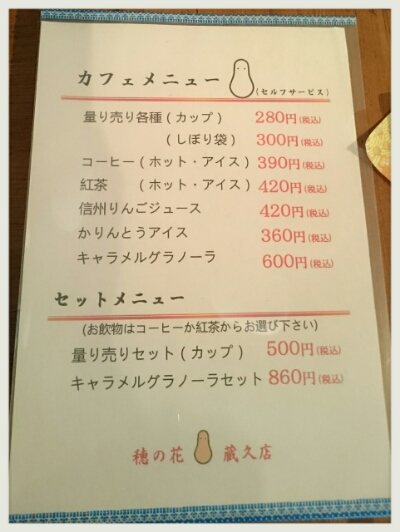 カフェメニュー (セルフサービス)
量り売り各種 ( カップ ) 280円(税込)
( しぼり袋 ) 300円(税込)
コーヒー ( ホット・アイス ) 390円(税込)
紅茶 ( ホット・アイス ) 420円(税込)
信州りんごジュース 420円(税込)
かりんとうアイス 360円(税込)
キャラメルグラノーラ 600円(税込)
セットメニュー
(お飲物はコーヒーか紅茶からお選び下さい)
量り売りセット ( カップ ) 500円(税込)
キャラメルグラノーラセット 860円(税込)
穂の花 蔵久店